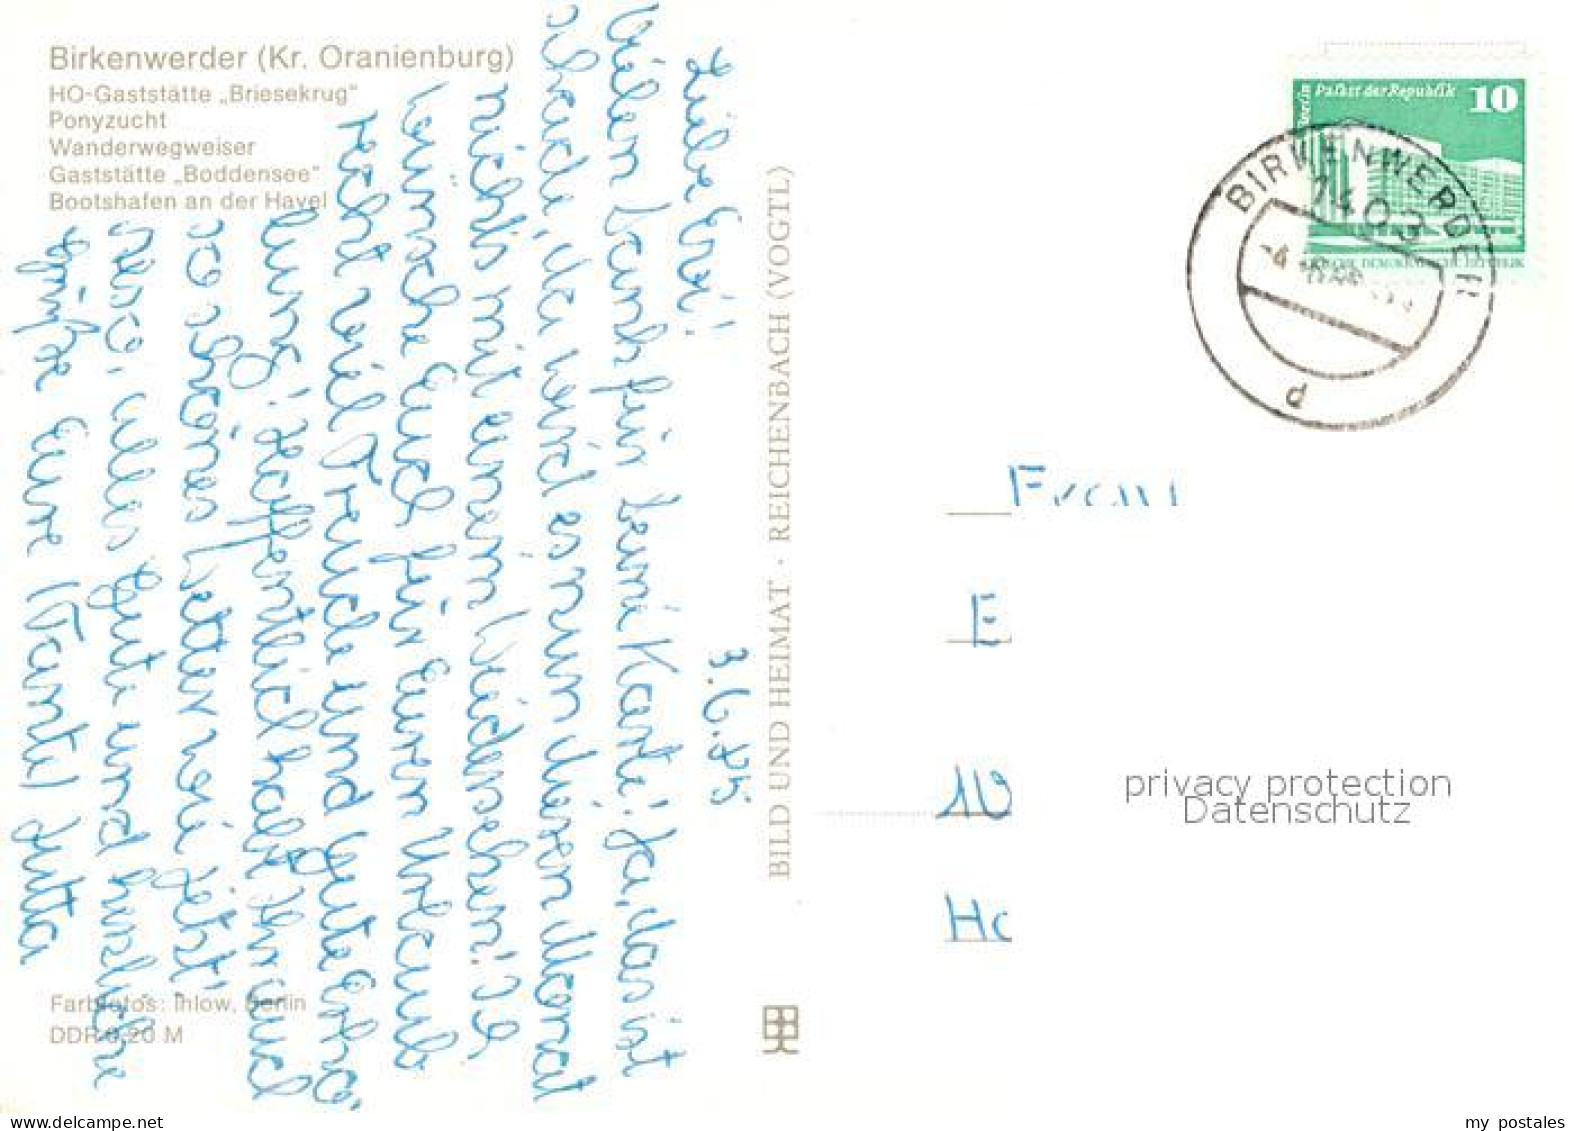 Birkenwerder (Kr. Oranienburg)
HO-Gaststätte „Briesekrug"
Ponyzucht
Wanderwegweiser
Gaststätte „Boddensee"
Bootshafen an der Havel
3.6.85
Liebe Erxi!
Vielen Dank für Deine Karte! Ja, das ist
schade, da wird es nun diesen Monat
nichts mit einem Wiedersehen! Ich
wünsche Euch für Euren Urlaub
recht viel Freude und gute Erho-
lung! Hoffentlich habt Ihr auch
so schönes Wetter wie jetzt!
Also, alles Gute und herzliche
Grüße Eure Tante Jutta
Farbfotos: Ihlow, Berlin
DDR 0,20 M
BILD UND HEIMAT · REICHENBACH (VOGTL)
Berlin Palast der Republik 10
BIRKENWERDER
1403
d
E
10
Ho
privacy protection
Datenschutz
www.delcampe.net
my_postales